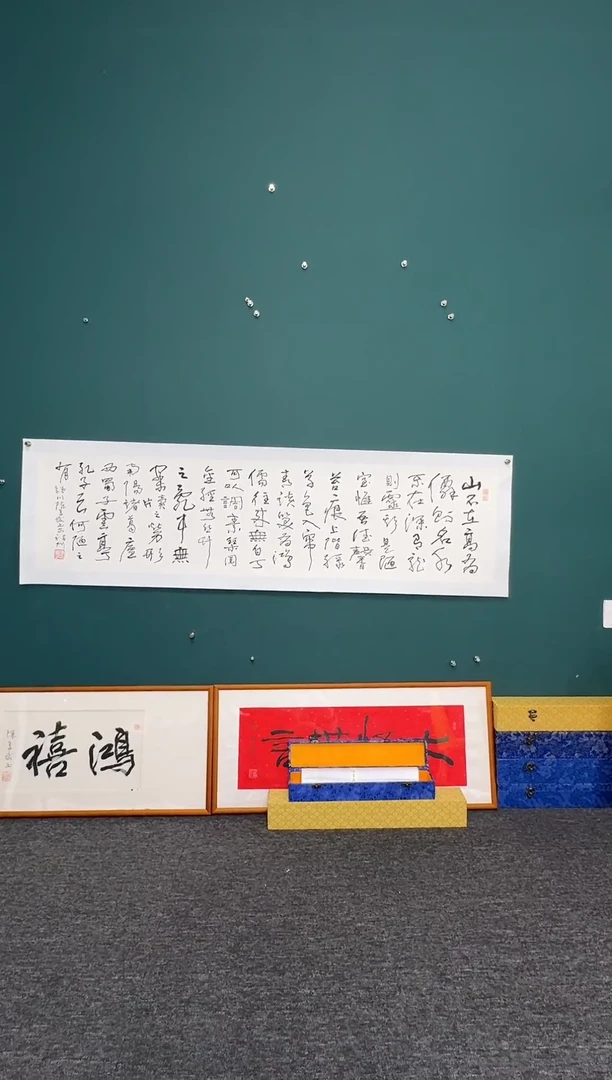 山不在高有
僊則名水
不在深有龍
則靈斯是陋
室惟吾德馨
苔痕上階綠
草色入簾
青談笑有鴻
儒往來無白丁
可以調素琴閱
金經無絲竹
之亂耳無
案牘之勞形
南陽諸葛廬
西蜀子雲亭
孔子云何陋之
有
鴻禧